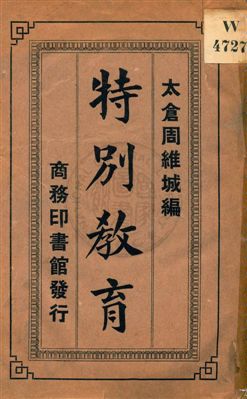 太倉周維城編
特別教育
商務印書館發行
W
4727